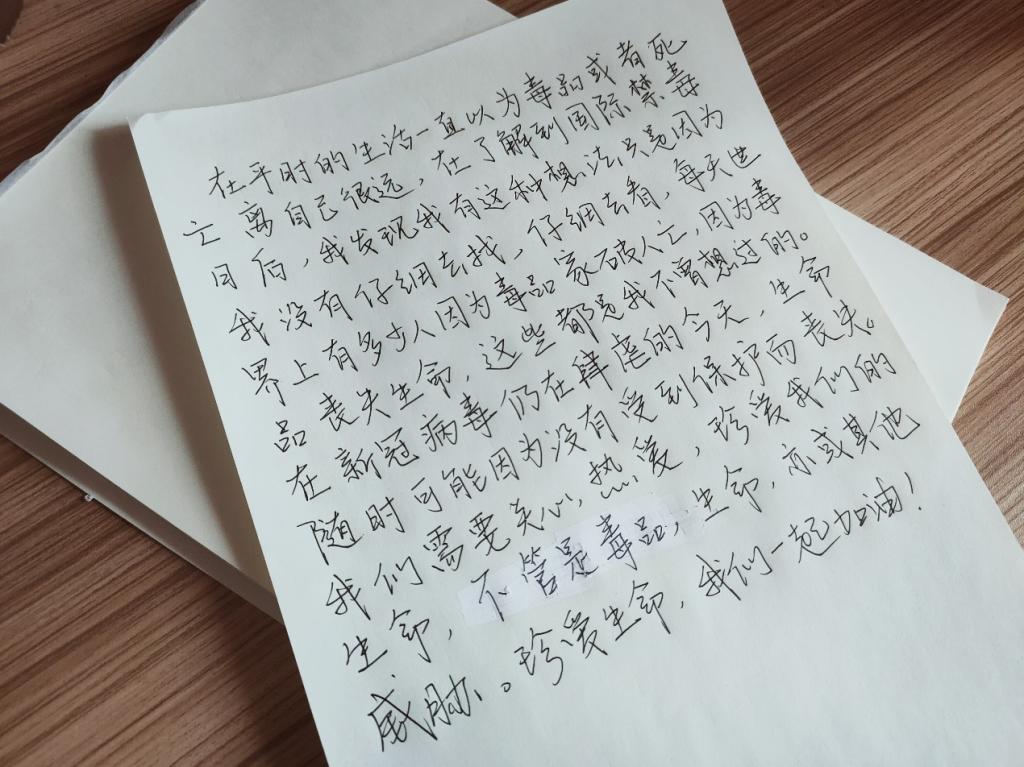 在平时的生活一直以为毒品或者死
亡离自己很远，在了解到国际禁毒
日后，我发现我有这种想法只是因为
我没有仔细去找，仔细去看，每天世
界上有多少人因为毒品家破人亡，因为毒
品丧失生命，这些都是我不曾想过的。
在新冠病毒仍在肆虐的今天，生命
随时可能因为没有受到保护而丧失。
我们需要关心，热爱，珍爱我们的
生命，不管是毒品，生命，亦或其他
威胁。珍爱生命，我们一起加油！